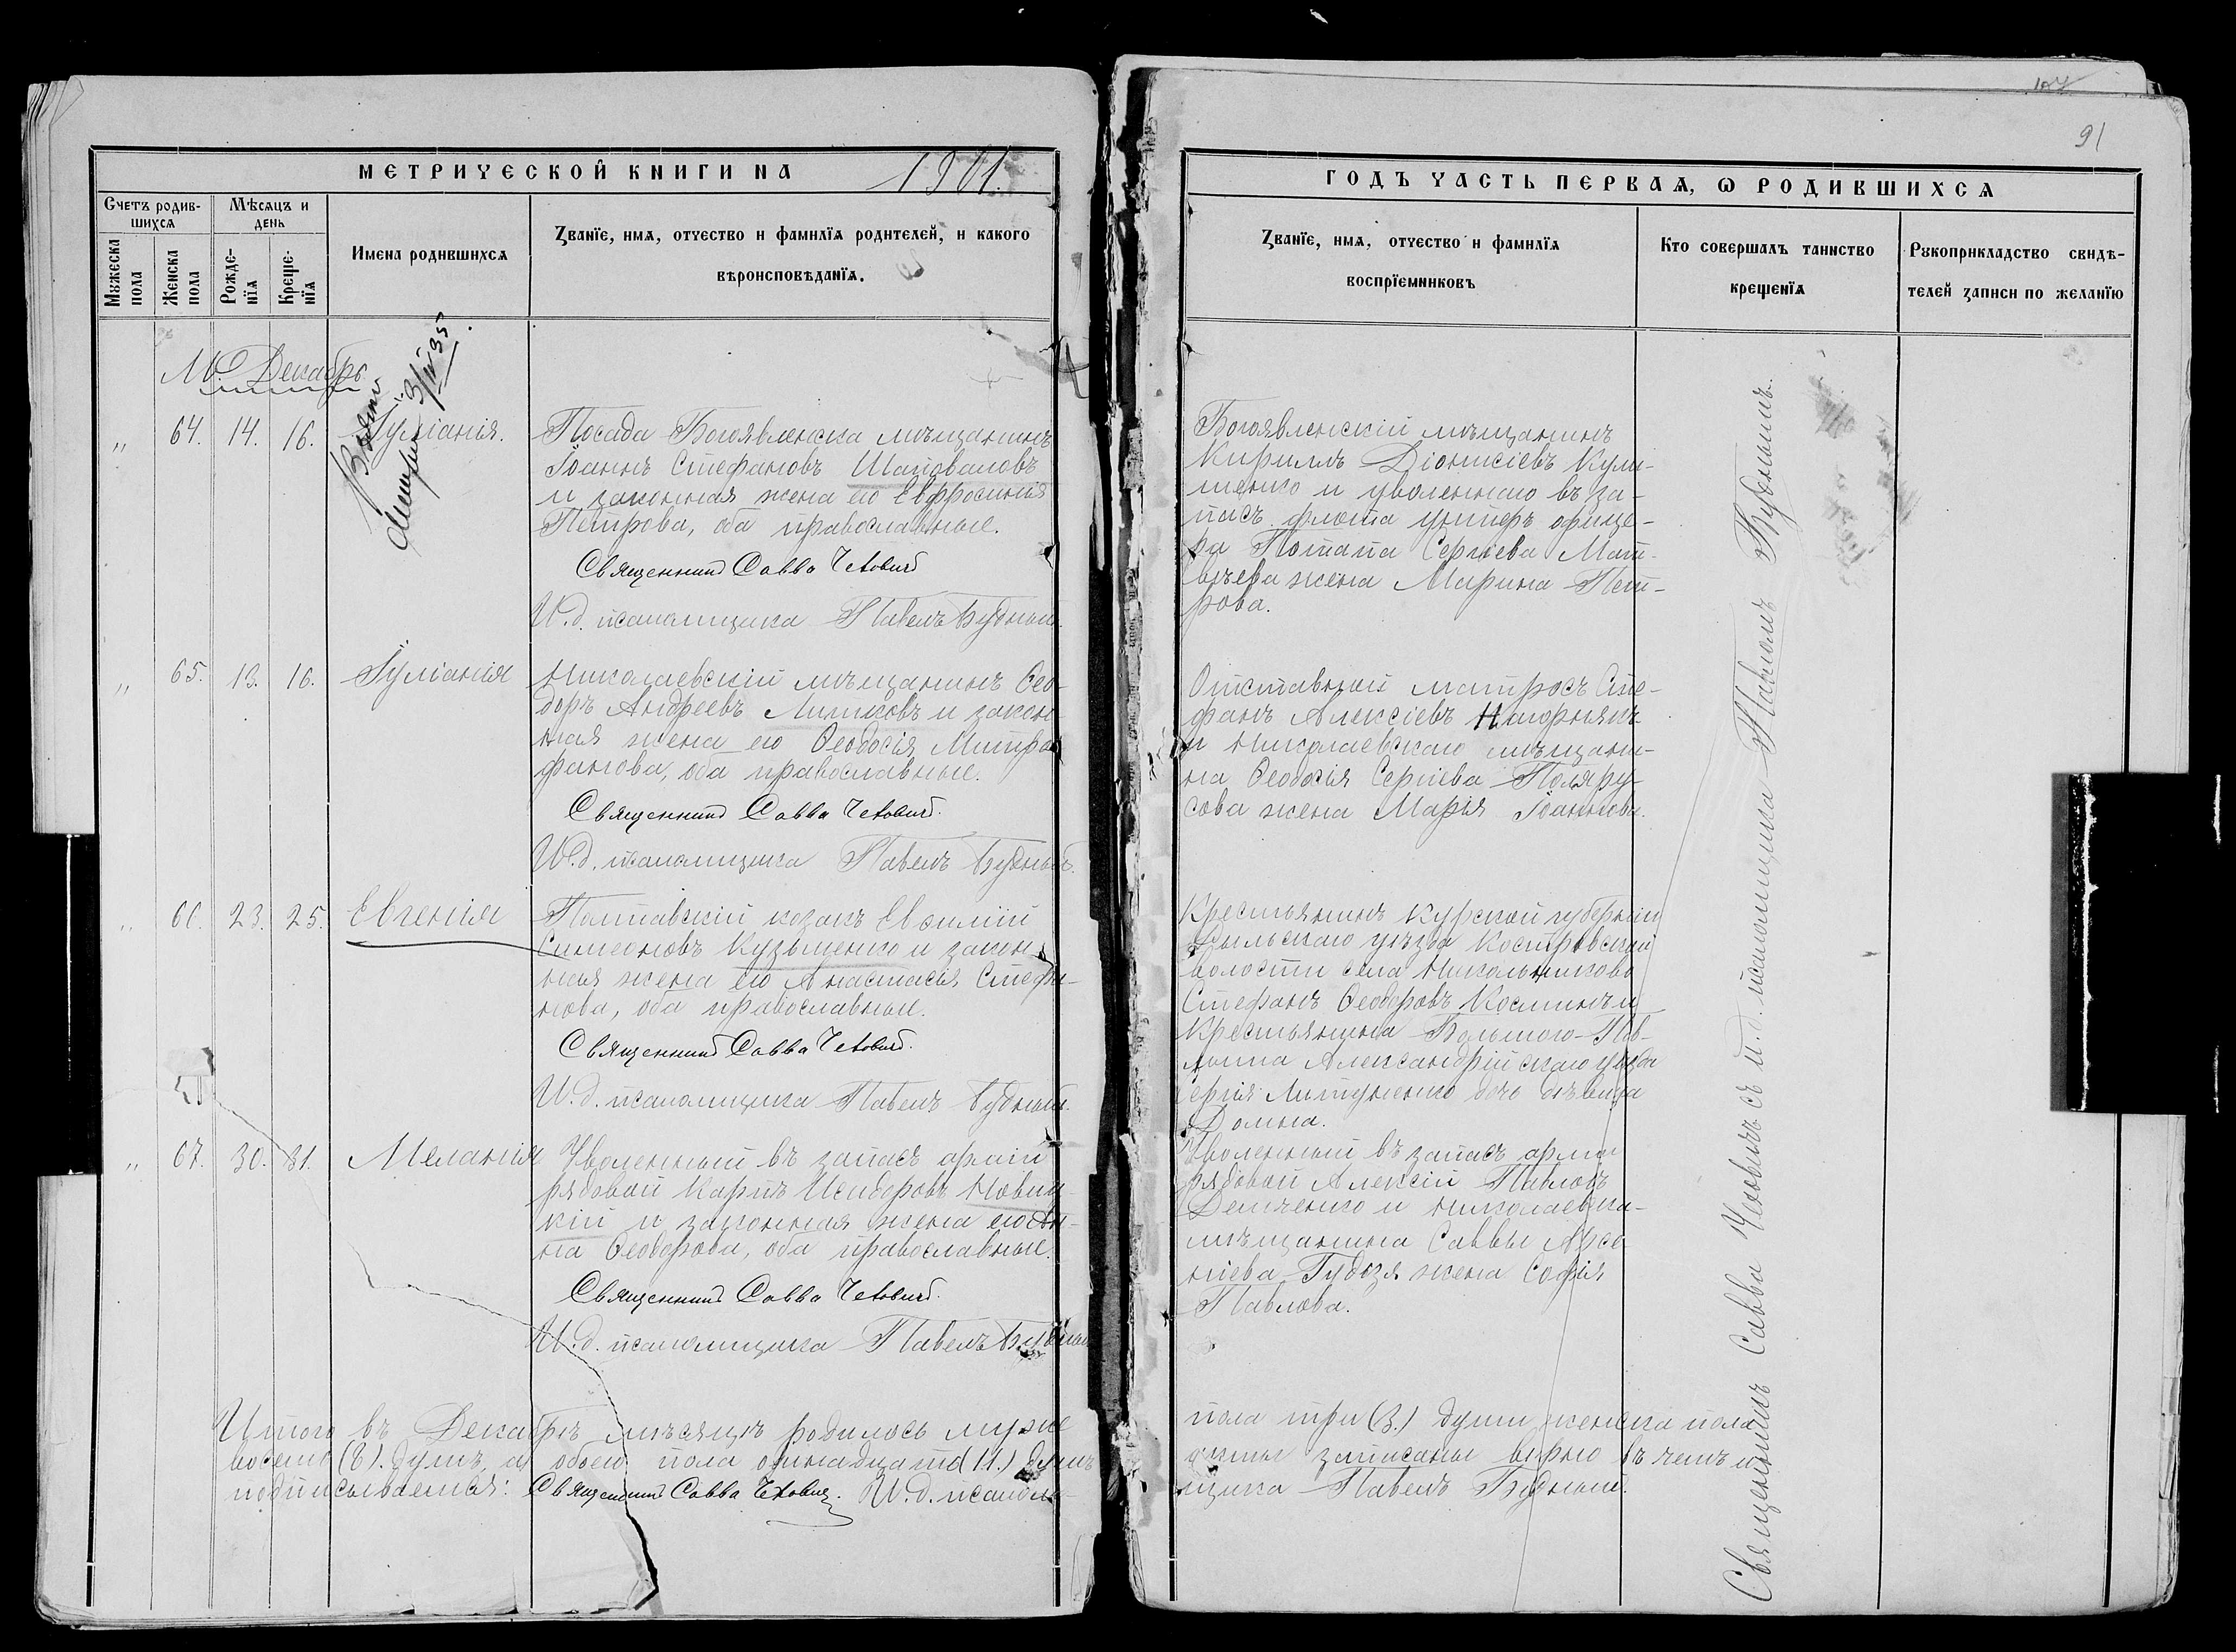 91
МЕТРИЧЕСКОЙ КНИГИ НА 1901.
ГОДЪ ЧАСТЬ ПЕРВАѦ, Ѡ РОДИВШИХСѦ
Счетъ родив-
шихсѧ
Мѣсѧцъ и
день
Мужеска
пола
Женска
пола
Рожде-
нїѧ
Креще-
нїѧ
Имена родившихсѧ
Званїе, имѧ, отчество и фамилїѧ родителей, и какого
вѣроисповѣданїѧ.
Званїе, имѧ, отчество и фамилїѧ
воспрїемниковъ
Кто совершалъ таинство
крещенїѧ
Рукоприкладство свидѣ-
телей записи по желанїю
М. Декабрь
„ 64. 14. 16. Іуліанія.
Посада Богоявленска мѣщанинъ
Іоаннъ Стефановъ Шаповаловъ
и законная жена его Евфросинія
Петрова, оба православные.
Священникъ Савва Чехович
И.д. псаломщика Павелъ Будный.
Богоявленскій мѣщанинъ
Кириллъ Діонисіевъ Кули-
менко и уволеннаго въ за-
пасъ флота унтеръ офице-
ра Потапа Сергіева Мат-
вѣева жена Марина Пет-
рова.
„ 65. 13. 16. Іуліанія
Николаевскій мѣщанинъ Ѳео-
доръ Андреевъ и закон-
ная жена его Ѳеодосія Митро-
фанова, оба православные.
Священникъ Савва Чехович.
И.д. псаломщика Павелъ Будный.
Отставной матросъ Сте-
фанъ Алексіевъ
и Николаевскаго мѣщани-
на Ѳеодосія Сергіева Поляру-
сова жена Марія Іоаннова.
„ 66. 23. 25. Евгенія
Полтавскій козакъ Евѳимій
Симеоновъ Кузьменко и закон-
ная жена его Анастасія Стефа-
нова, оба православные.
Священникъ Савва Чехович.
И.д. псаломщика Павелъ Будный.
Крестьянинъ Курской губерніи
Рыльскаго уѣзда
волости села Никольникова
Стефанъ Ѳеодоровъ Косминъ и
Крестьянина
Александрійскаго уѣзда
Сергія Литуненко дочь дѣвица
Домна.
„ 67. 30. 31. Меланія
Уволенный въ запасъ арміи
рядовой Карпъ Исидоровъ Новиц-
кій и законная жена его Ан-
на Ѳеодорова, оба православные.
Священникъ Савва Чехович.
И.д. псаломщика Павелъ Будный
Уволенный въ запасъ арміи
рядовой Алексій Павловъ
Демченко и Николаевска-
мѣщанина Саввы Арсе-
ніева Гудзя жена Софія
Павлова.
Священникъ Савва Чеховичъ съ и.д. псаломщика Павломъ Буднымъ.
Итого въ Декабрѣ мѣсяцѣ родилось муже
пола три (3.) души женска пола
восемь (8). душъ, а обоего пола одинадцать (11.) душъ
записаны вѣрно въ чемъ и
подписываемся: Священникъ Савва Чехович. И.д. псалом-
щика Павелъ Будный.